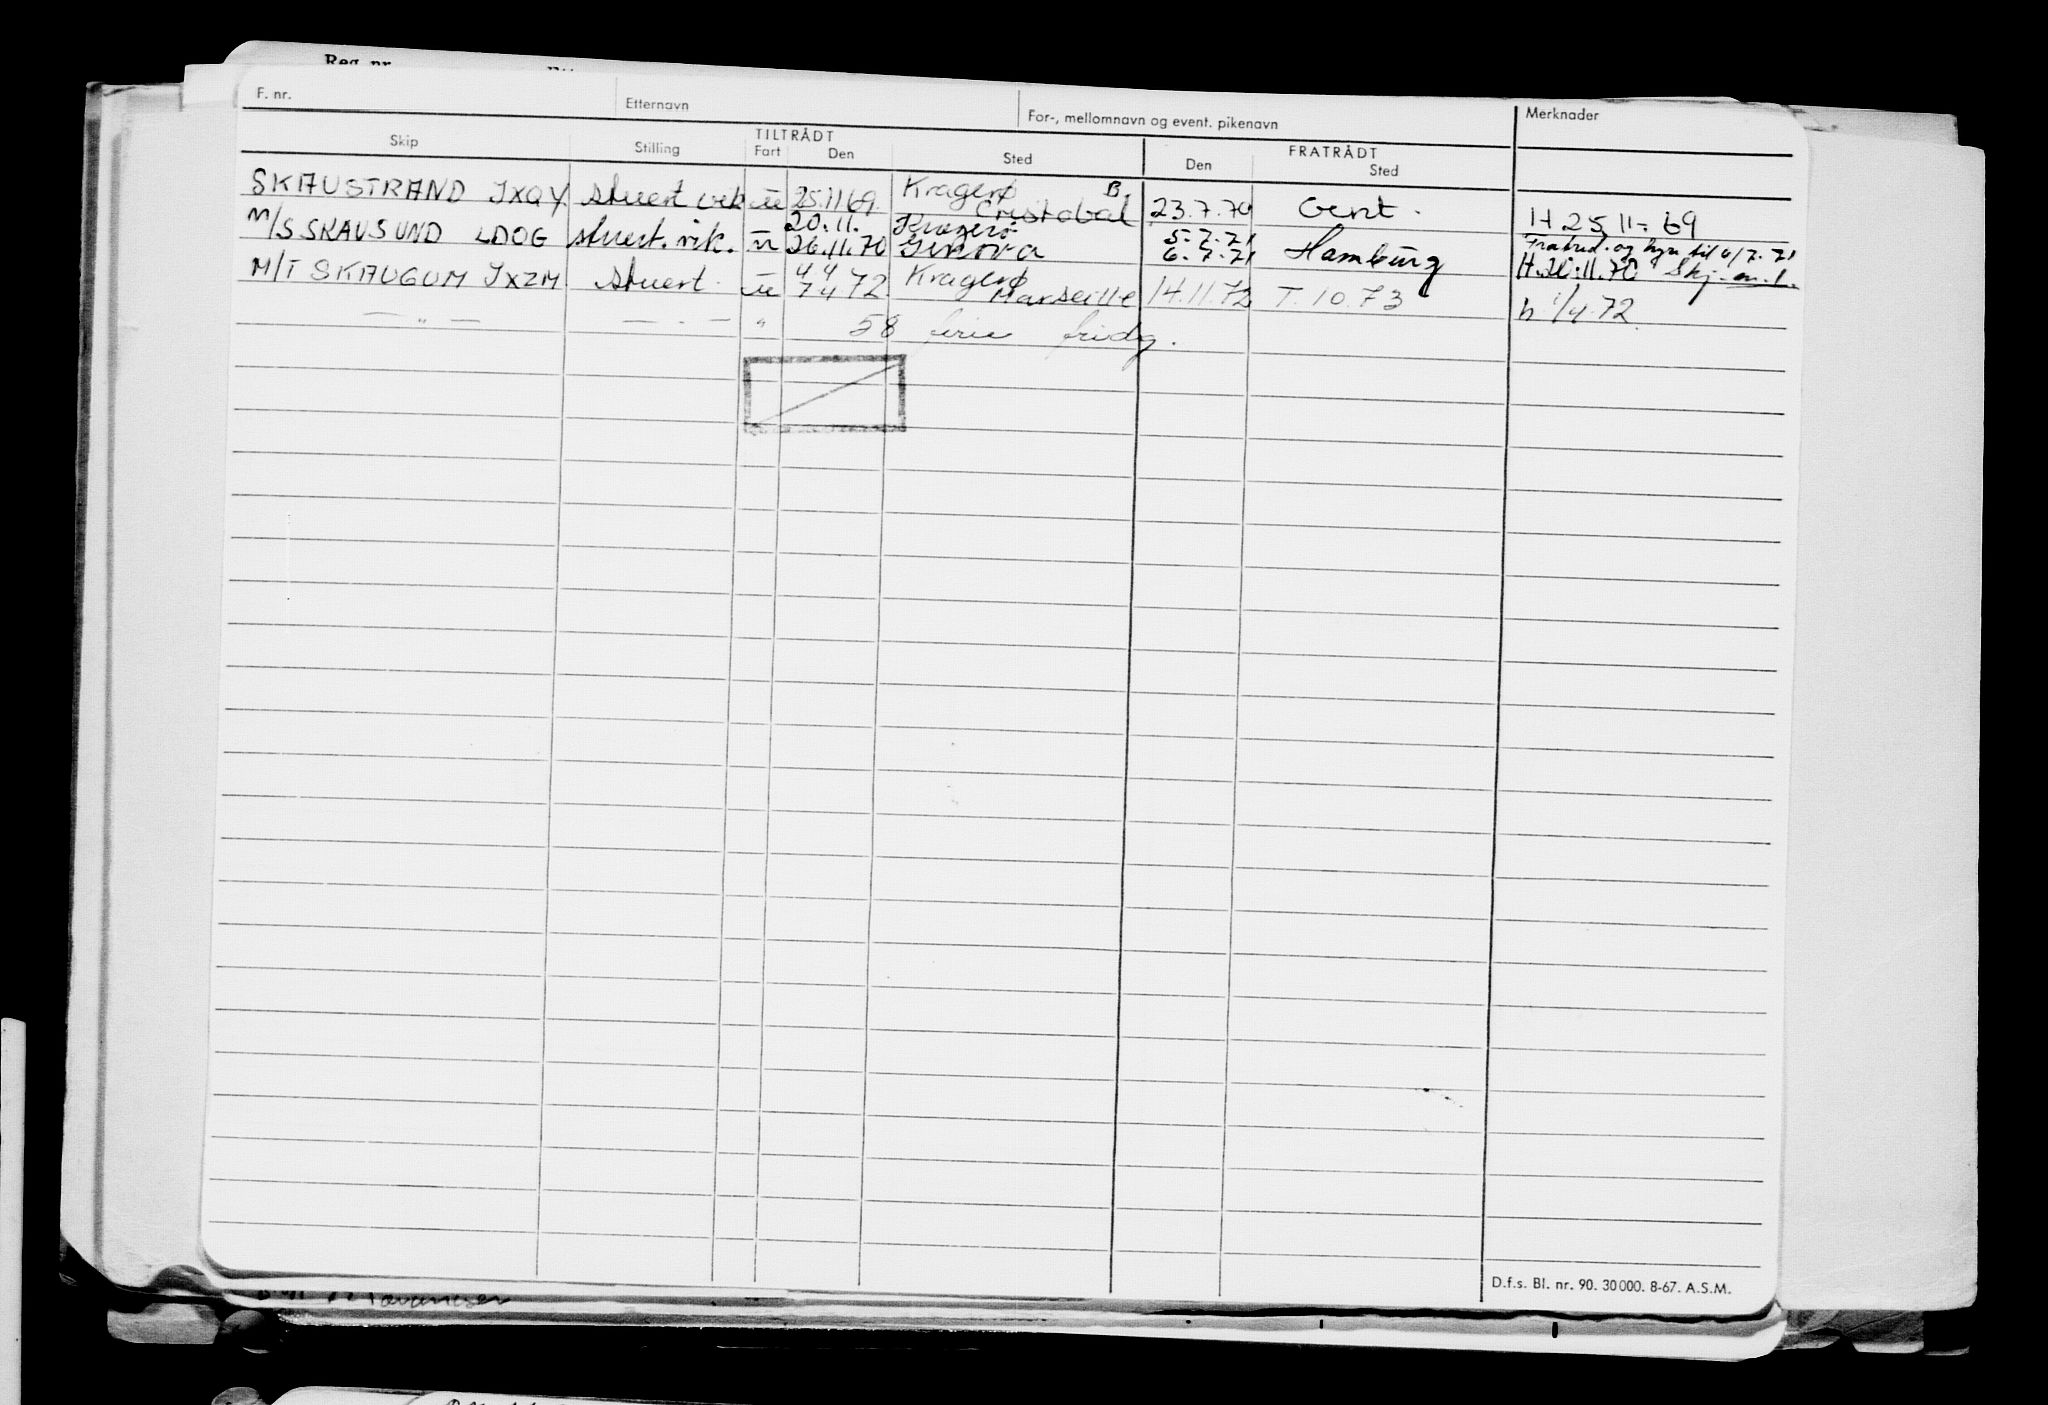 Reg. nr.
F. nr. Etternavn For-, mellomnavn og event. pikenavn Merknader
TILTRÅDT FRATRÅDT
Skip Stilling Fart Den Sted Den Sted
SKAUSTRAND JXQY stuert vik u 25.11 69. Kragerø B. Cristobal 23.7.70 Gent. H 25.11-69
M/S SKAUSUND LDOG stuert. vik. u 20.11. 26.11.70 Kragerø Genova 5.7.71 6.7.71 Hamburg Fratrud. og hyre til 6/7.71 H.20.11.70 Skj. m.l.
M/T SKAUGUM JXZM stuert. u 4 4 7 4 72 Kragerø Marseille 14.11.72 T. 10.73 h 1/4.72.
— " — — . — " 58 ferie fridg.
D.f.s. Bl. nr. 90. 30 000. 8-67. A.S.M.